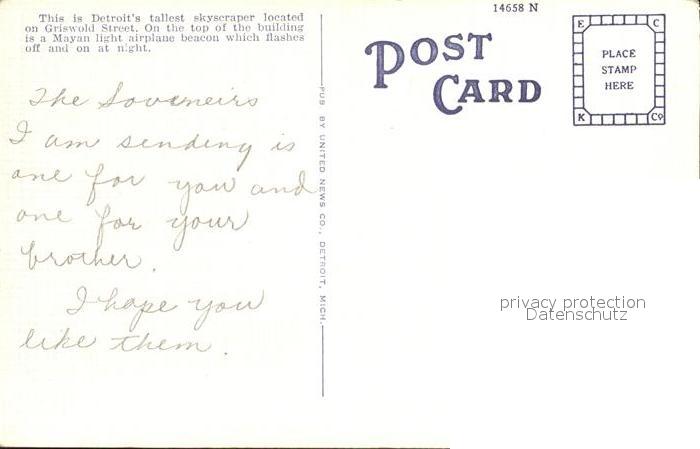 This is Detroit's tallest skyscraper located
on Griswold Street. On the top of the building
is a Mayan light airplane beacon which flashes
off and on at night.
The Soveneirs
I am sending is
one for you and
one for your
brother.
I hope you
like them.
PUB BY UNITED NEWS CO., DETROIT, MICH.
14658 N
POST
CARD
E C
PLACE
STAMP
HERE
K Co
privacy protection
Datenschutz